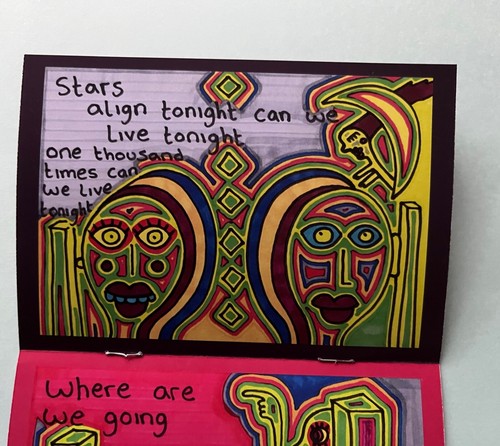 Stars
align tonight can we
live tonight
one thousand
times can
we live
tonight
Where are
we going